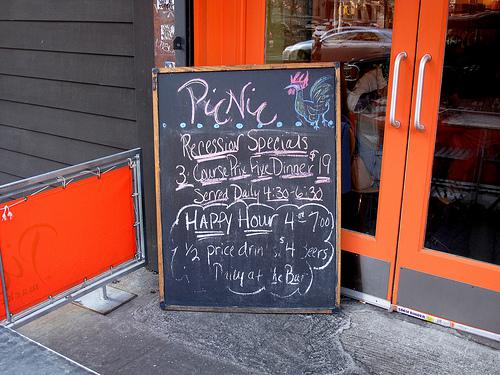 PicNic
Recession Specials
3 Course Prix Fixe Dinner $19
Served Daily 4:30-6:30
HAPPY HOUR 4-7:00
1/2 price drin $4 eers
Daily at he Bar